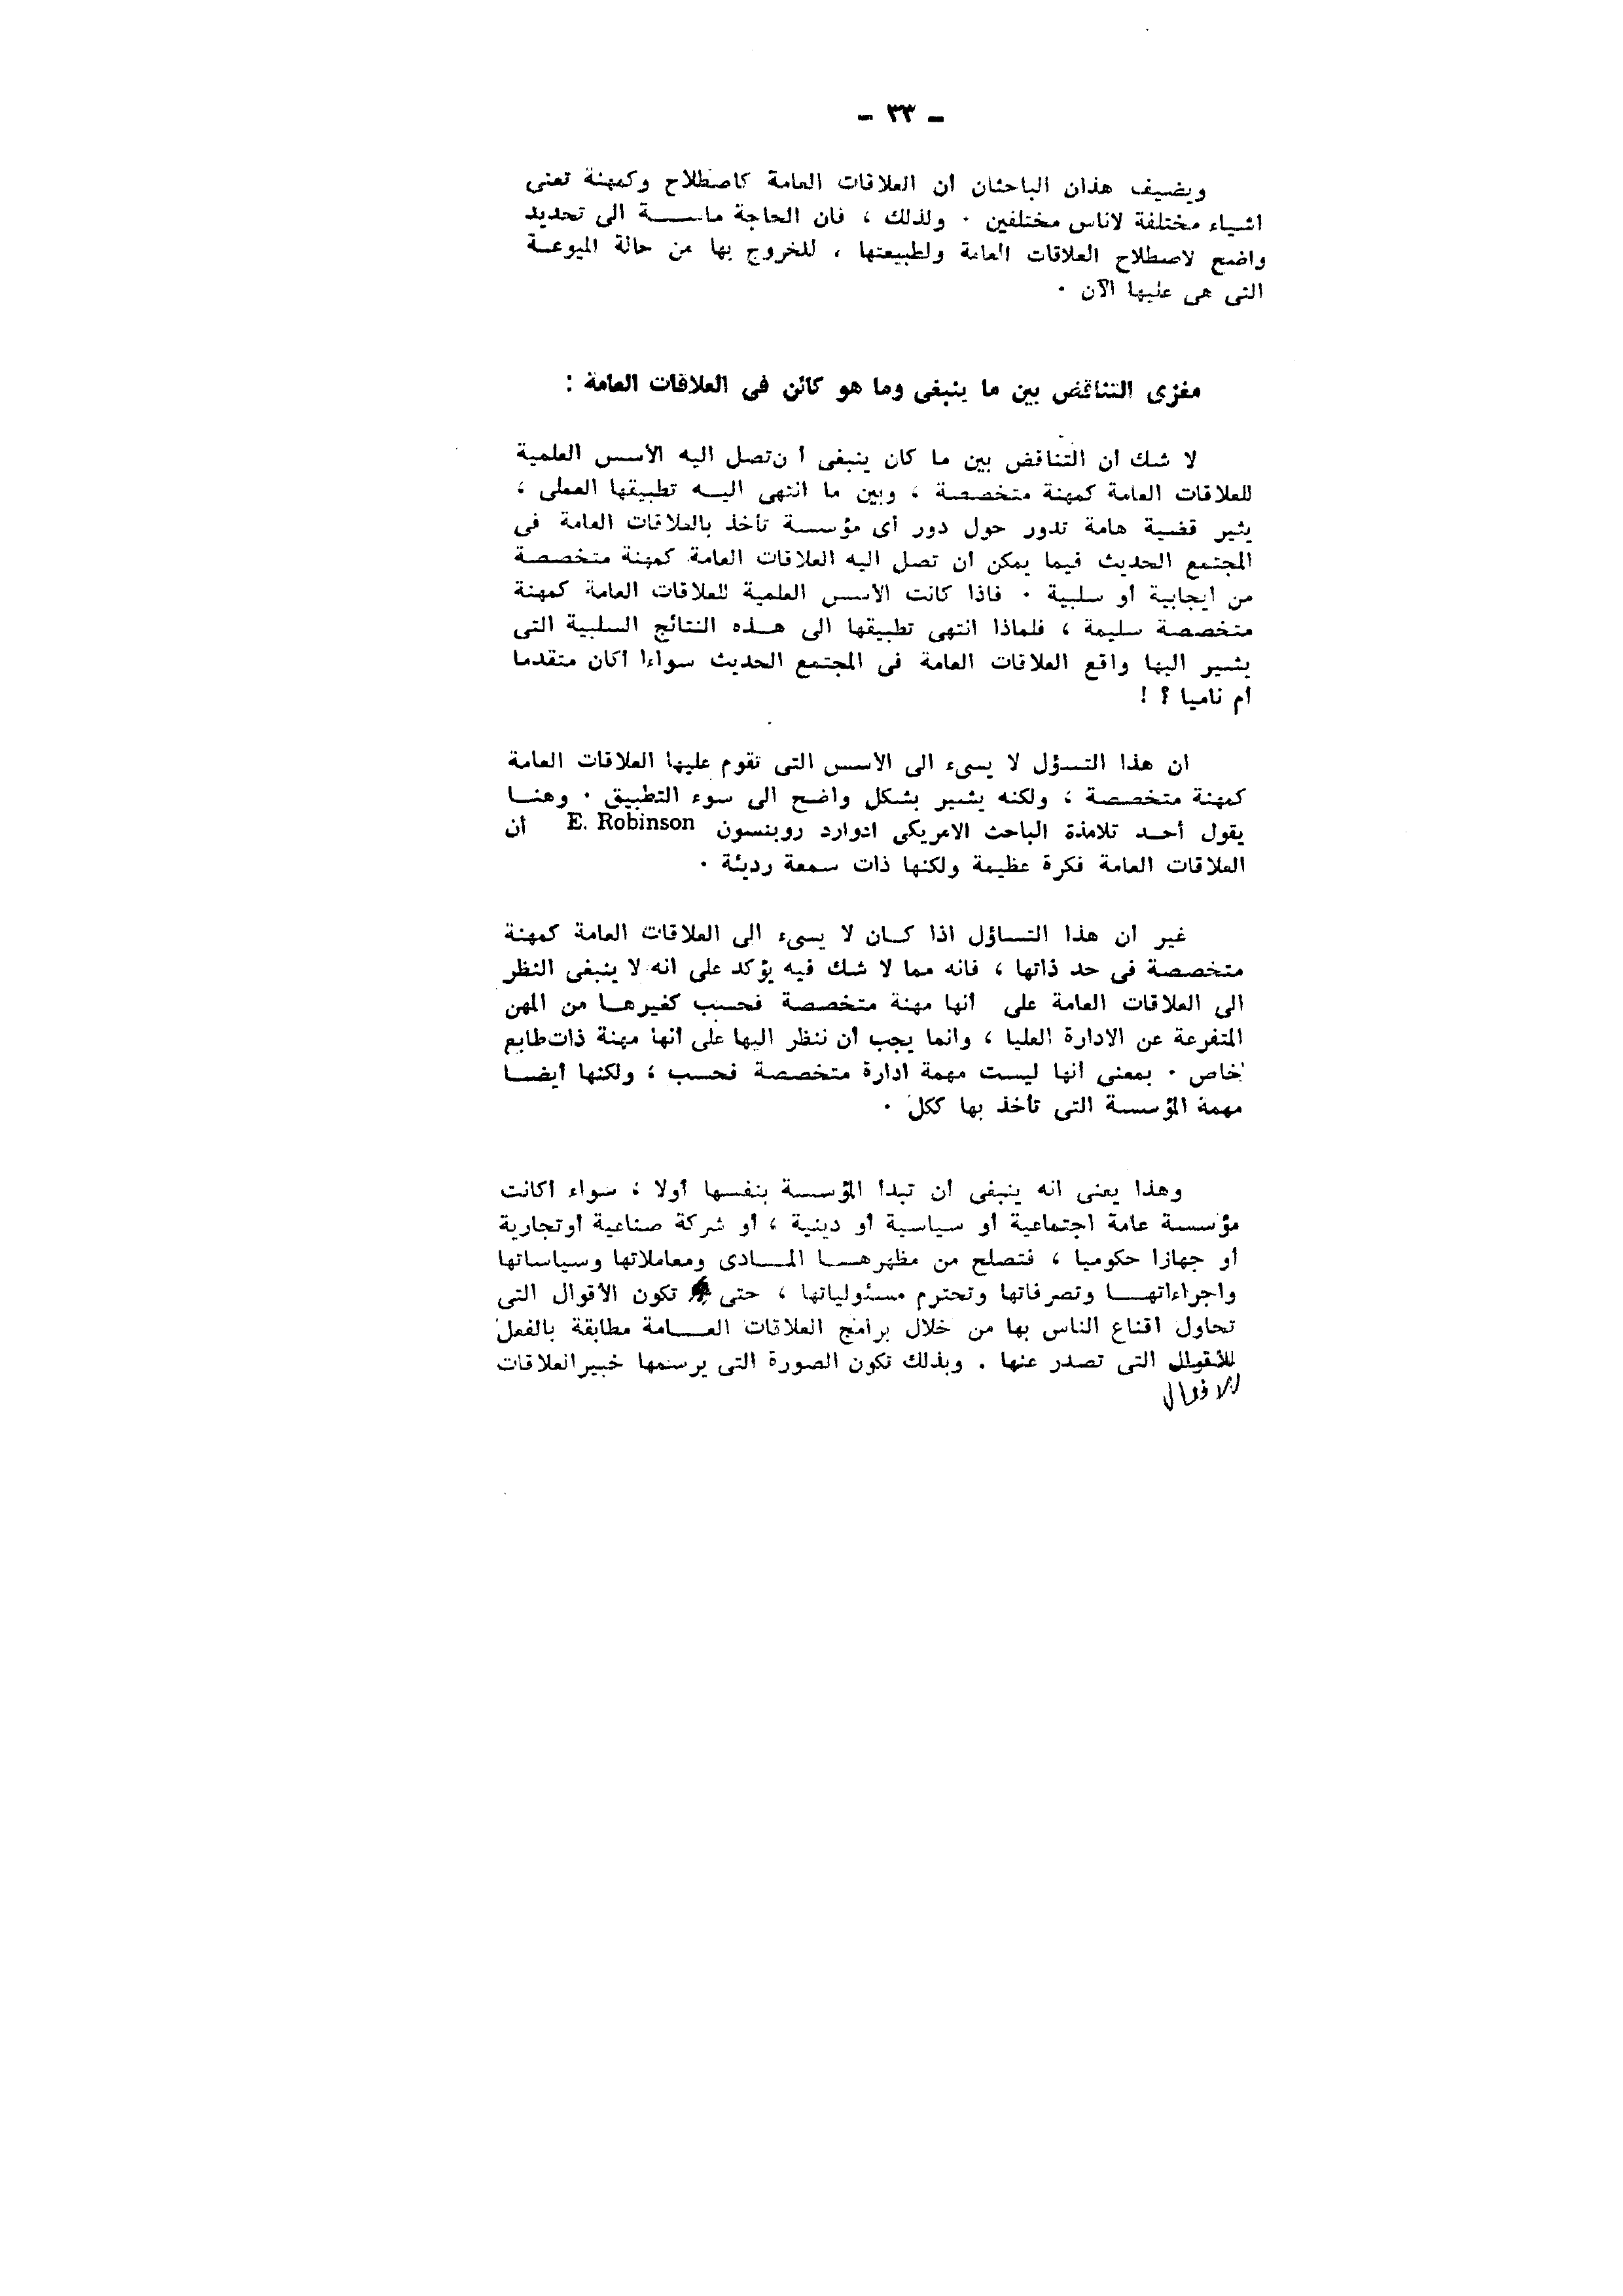 ـ ٣٣ ـ
ويضيف هذان الباحثان أن العلاقات العامة كاصطلاح وكمهنة تعنى
أشياء مختلفة لاناس مختلفين ٠ ولذلك ، فان الحاجة ماســـة الى تحديد
واضح لاصطلاح العلاقات العامة ولطبيعتها ، للخروج بها من حالة الميوعـة
التى هى عليها الآن ٠
مغزى التناقض بين ما ينبغى وما هو كائن فى العلاقات العامة :
لا شك أن التناقض بين ما كان ينبغى أ ن تصل اليه الأسس العلمية
للعلاقات العامة كمهنة متخصصة ، وبين ما انتهى اليــه تطبيقها العملى ،
يثير قضية هامة تدور حول دور أى مؤسسة تأخذ بالعلاقات العامة فى
المجتمع الحديث فيما يمكن أن تصل اليه العلاقات العامة كمهنة متخصصة
من ايجابية أو سلبية ٠ فاذا كانت الأسس العلمية للعلاقات العامة كمهنة
متخصصة سليمة ، فلماذا انتهى تطبيقها الى هــذه النتائج السلبية التى
يشير اليها واقع العلاقات العامة فى المجتمع الحديث سواءا أكان متقدما
أم ناميا ؟ !
ان هذا التسؤل لا يسىء الى الأسس التى تقوم عليها العلاقات العامة
كمهنة متخصصة ، ولكنه يشير بشكل واضح الى سوء التطبيق ٠ وهنــا
يقول أحــد تلامذة الباحث الامريكى ادوارد روبنسون E. Robinson أن
العلاقات العامة فكرة عظيمة ولكنها ذات سمعة رديئة ٠
غير أن هذا التساؤل اذا كــان لا يسىء الى العلاقات العامة كمهنة
متخصصة فى حد ذاتها ، فانه مما لا شك فيه يؤكد على انه لا ينبغى النظر
الى العلاقات العامة على أنها مهنة متخصصة فحسب كغيرهــا من المهن
المتفرعة عن الادارة العليا ، وانما يجب أن ننظر اليها على أنها مهنة ذات طابع
خاص ٠ بمعنى أنها ليست مهمة ادارة متخصصة فحسب ، ولكنها أيضــا
مهمة المؤسسة التى تأخذ بها ككل ٠
وهذا يعنى انه ينبغى أن تبدأ المؤسسة بنفسها أولا ، سواء أكانت
مؤسسة عامة اجتماعية أو سياسية أو دينية ، أو شركة صناعية أو تجارية
أو جهازا حكوميا ، فتصلح من مظهرهـــا المـــادى ومعاملاتها وسياساتها
واجراءاتهـــا وتصرفاتها وتحترم مسئولياتها ، حتى تكون الأقوال التى
تحاول اقناع الناس بها من خلال برامج العلاقات العـــامة مطابقة بالفعل
للأقوال التى تصدر عنها . وبذلك تكون الصورة التى يرسمها خبير العلاقات
للافعال